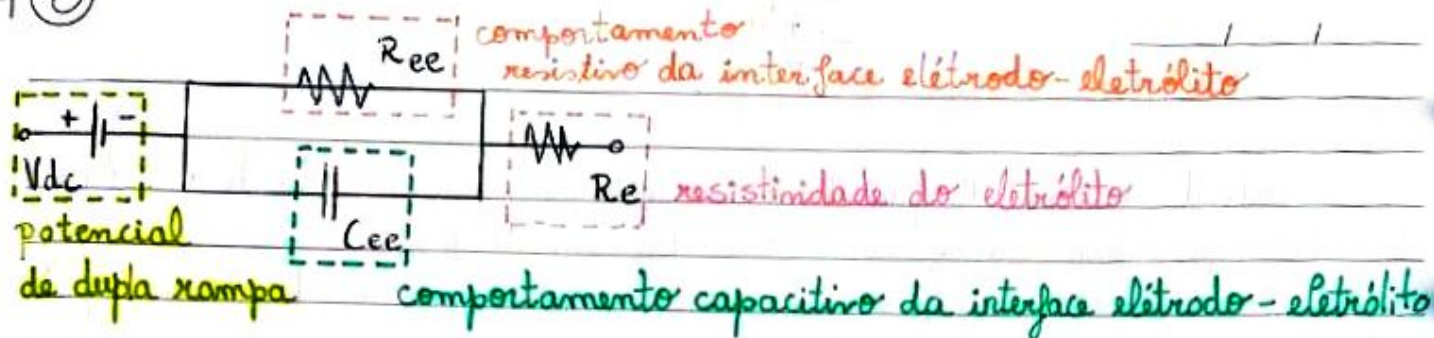 Ree
comportamento
resistivo da interface elétrodo-eletrólito
+ -
Vdc
Re
resistividade do eletrólito
Cee
potencial
de dupla rampa
comportamento capacitivo da interface elétrodo-eletrólito